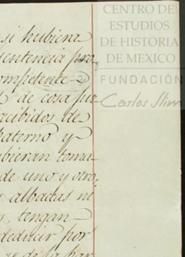 si hubiera
sentencia pro
competente
de cosa ju
recibidos de
paterno y
ubieran toma
de uno y otro
albaceas ni
, tengan
deducir por
CENTRO DE
ESTUDIOS
DE HISTORIA
DE MÉXICO
FUNDACIÓN
Carlos Slim